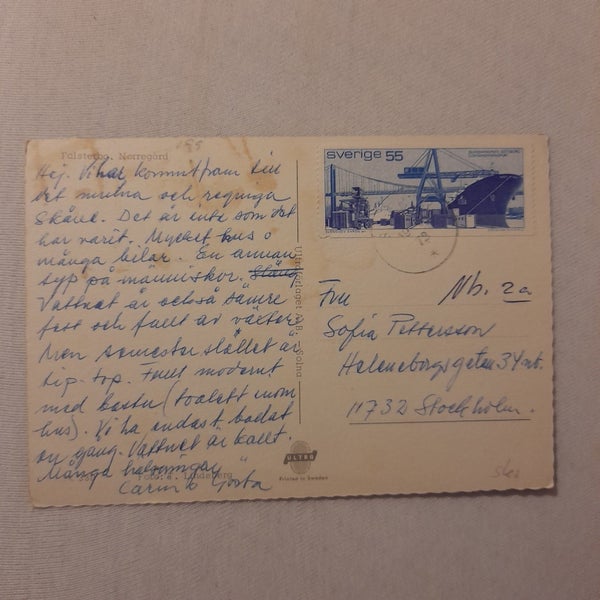 Falsterbo. Norregård
Hej. Vi har kommit fram till
det mulna och regniga
Skåne. Det är inte som det
har varit. Mycket hus o
många bilar. En annan
typ på människor.
Vattnet är också sämre
fett och fullt av växter
Men semesterstället är
tip-top. Fullt modernt
med bastu (toalett inom
hus). Vi ha endast badat
en gång. Vattnet är kallt.
Många hälsningar
Carin o Gösta
Foto: A. Lindeberg
Ultraförlaget A.B. Solna
sverige 55
Fru
Nb. 2a
Sofia Pettersson
Heleneborgsgatan 34
11732 Stockholm.
ULTRA
Printed in Sweden